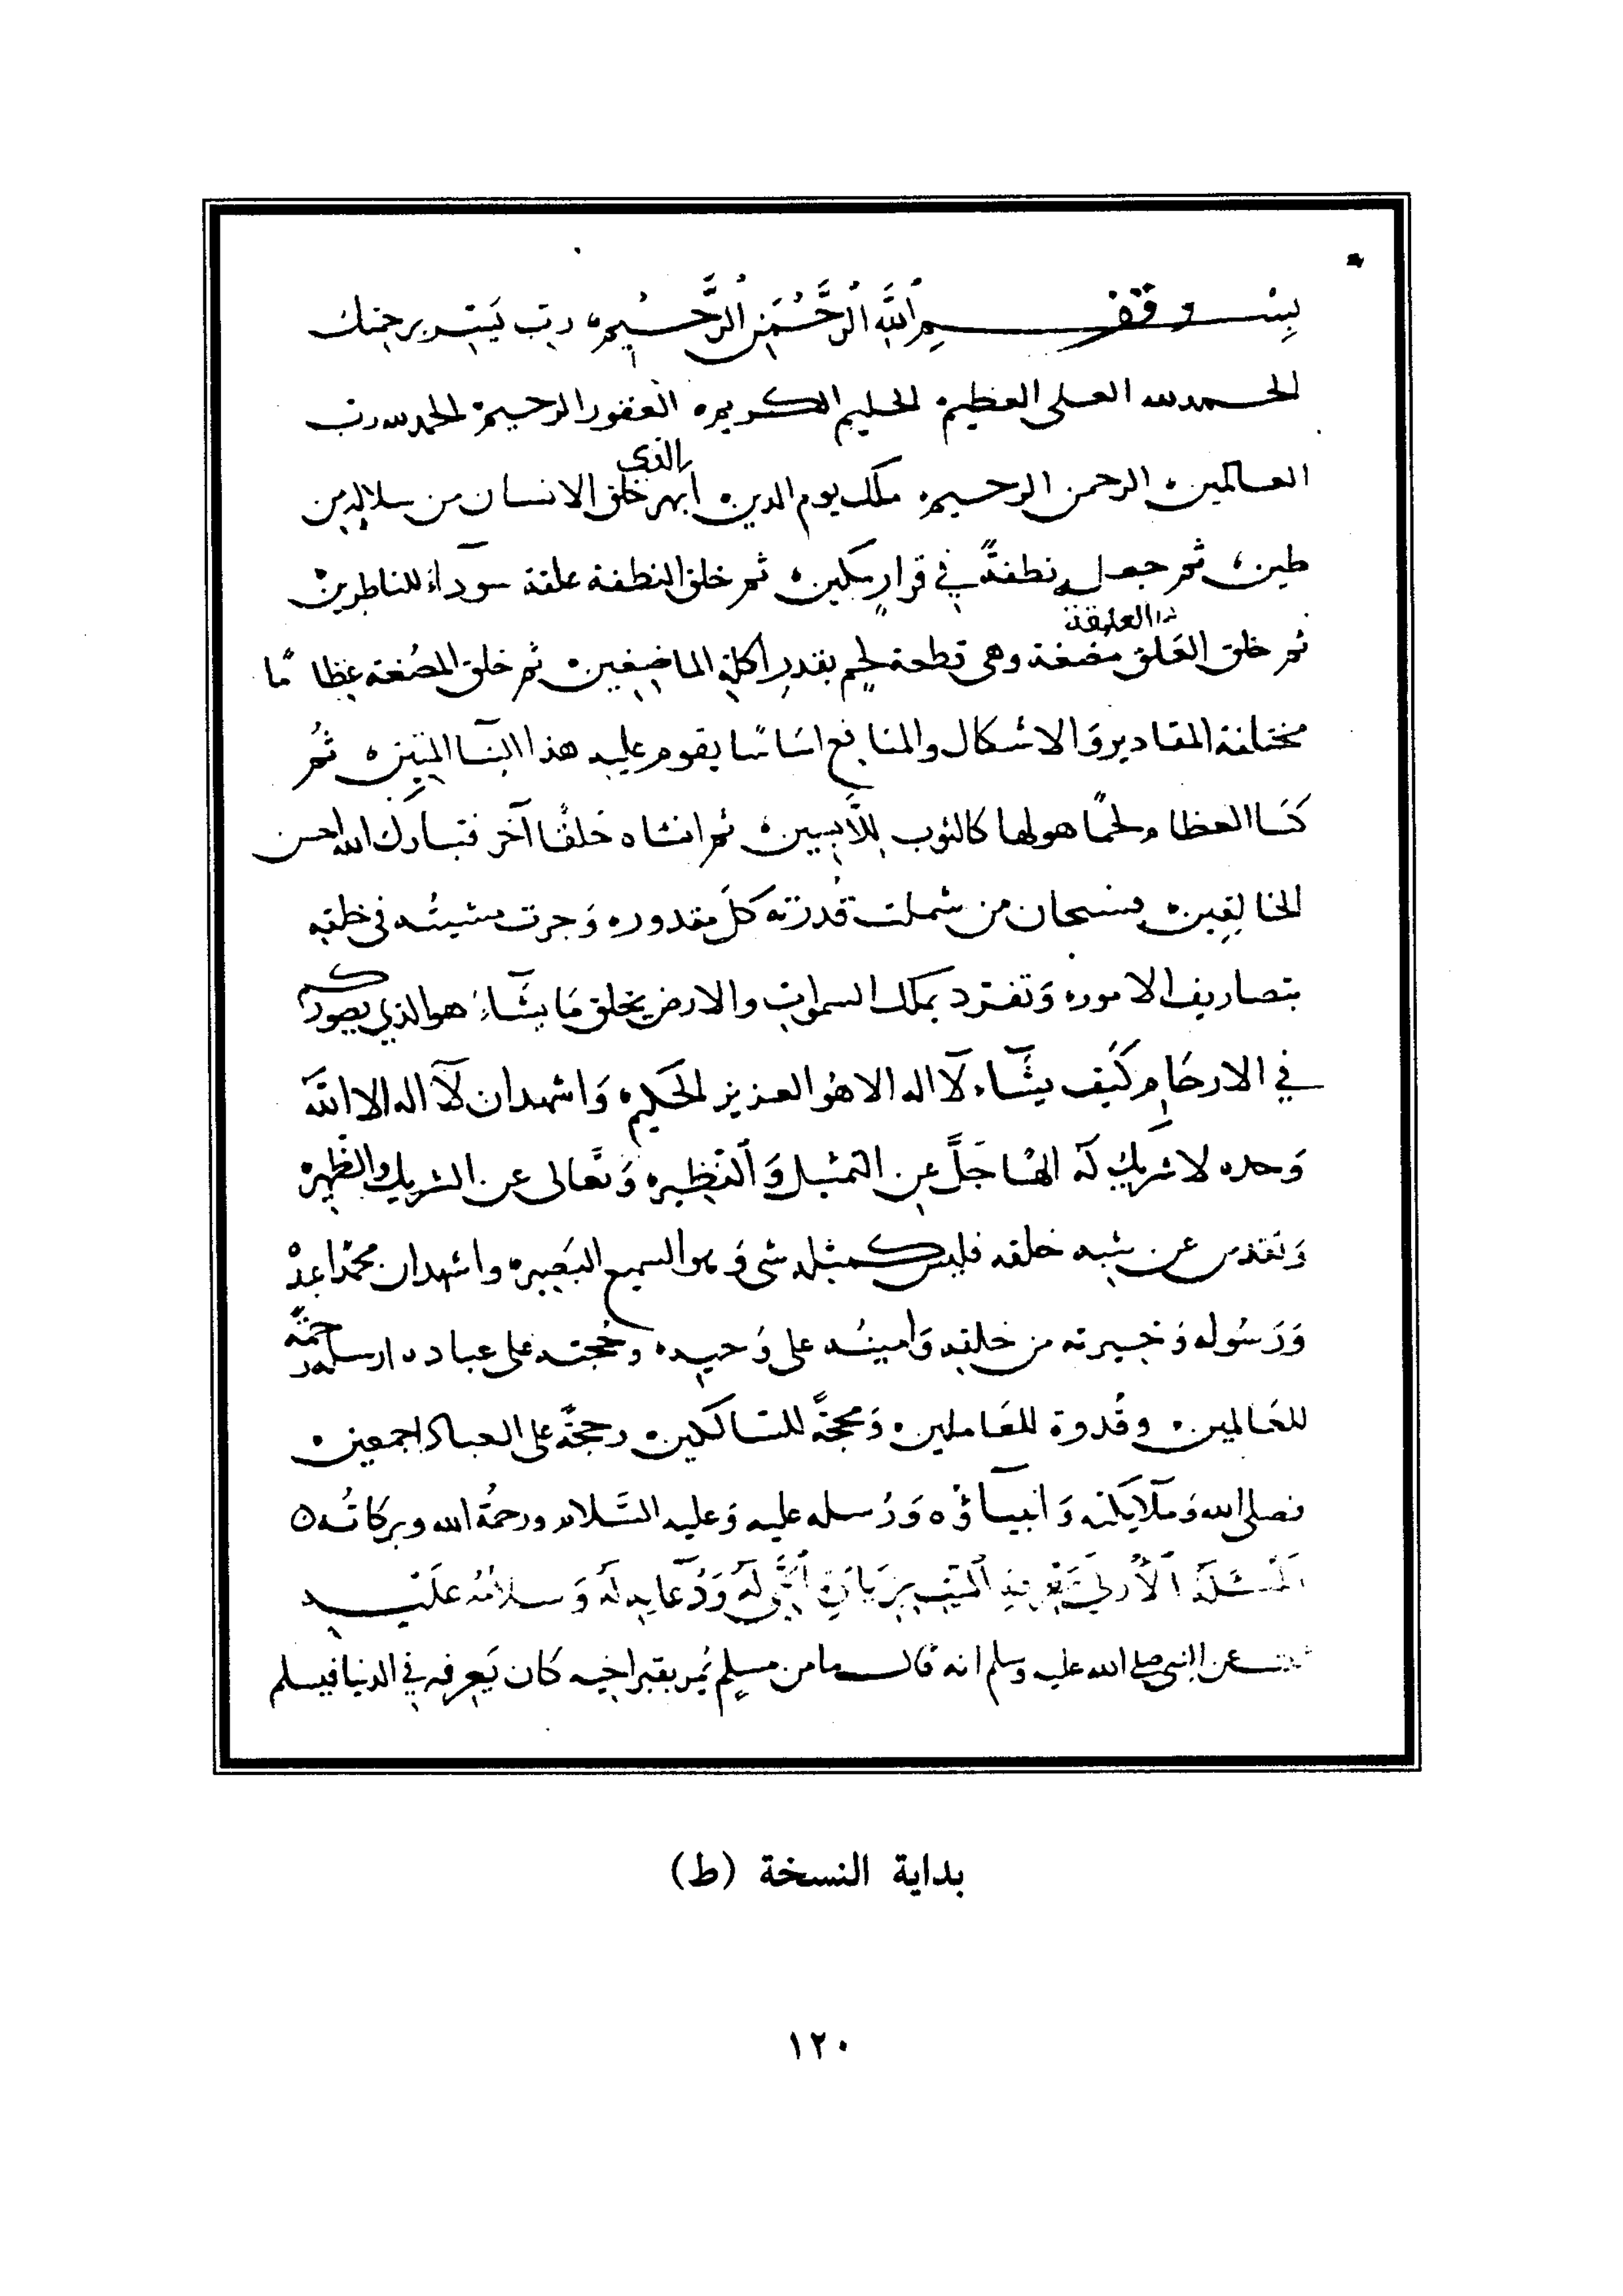 بِسْمِ اللَّهِ الرَّحْمَنِ الرَّحِيمِ ٥ رب يَسِّر برحمتك
وقف
الحمد لله العلى العظيم ٥ الحليم الكريم ٥ الغفور الرحيم ٥ الحمد لله رب
العالمين ٥ الرحمن الرحيم ٥ ملك يوم الدين ٥ الذي خلق الانسان من سلالة من
طين ٥ ثم جعله نطفةً في قرارٍ مكين ٥ ثم خلق النطفة علقة سودآء للناظرين
ثم خلق العلقة مضغة وهى قطعة لحم بقدر اكلة الماضغين ٥ ثم خلق المضغة عظامًا
مختلفة المقادير وَالاشكال والمنافع اسَاسًا يقوم عليه هذا البنآ المتين ٥ ثُم
كسَا العظام لحمًا هو لها كالثوب لِلَّابسين ٥ ثم انشاه خلقًا آخر فتبارك الله احسن
الخالقين ٥ فسبحان من شملت قُدرته كلّ مقدور ٥ وَجرت مشيئتُه في خلقه
بتصاريف الامور ٥ وَتفرد بملك السموات والارض يخلق مَا يشَآء هو الذي يصوركم
في الارحَام كَيف يشَآء لآ اله الا هُو العزيز الحكيم ٥ وَاشهد ان لآ اله الا اللّه
وَحده لا شريك لَه الهًا جَلَّ عن المثيل وَالنظير ٥ وَتعَالى عن الشريك والظهير ٥
وَتقدس عن شبه خلقه فليس كمثله شى وَهو السميع البَصير ٥ واشهد ان محمّدا عبدهُ
وَرَسُوله وَخيرته من خلقه وَامينُه على وَحيه ٥ وحُجته على عباده ارسله رحمةً
للعَالمين ٥ وقُدوة للعَاملين ٥ وَمحجّةً للسّالكين ٥ وحجةً على العباد اجمعين ٥
فصلى الله وَملآيكته وَانبيآؤه وَرُسله عليه وَعليه السَّلام ورحمةُ الله وبركاتُه ٥
المَسْئلَةُ الأُولى
عن النبى صلى الله عليه وسلم انه قال ما من مسلم يُمر بقبر اخيه كان يَعرفه في الدنيا فيسلم
بداية النسخة (ط)
١٢٠